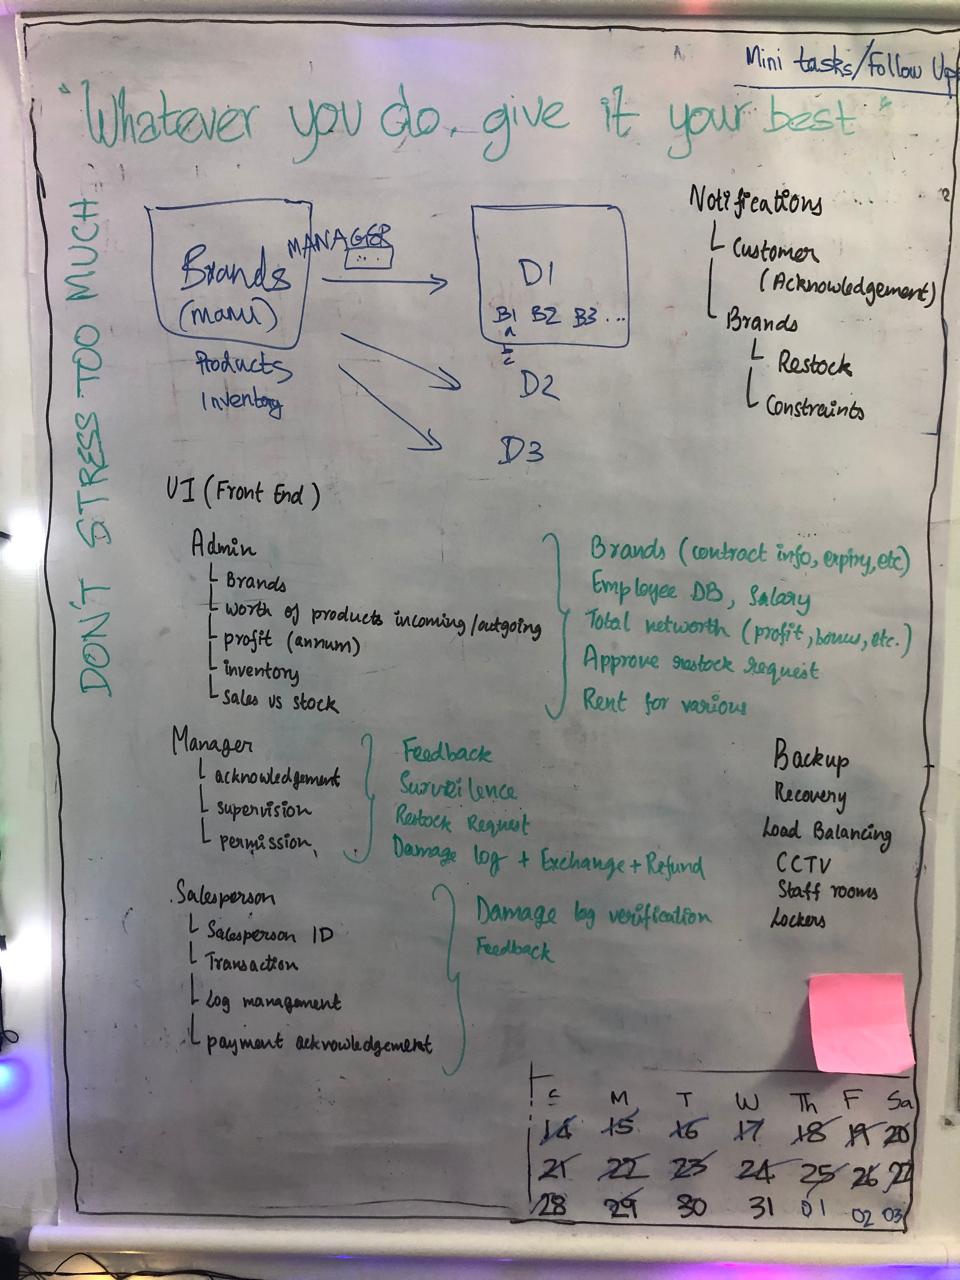 Mini tasks/Follow Up
"Whatever you do, give it your best"
DON'T STRESS TOO MUCH
Brands
MANAGER
Products
Inventory
D1
B1 B2 B3 ...
a
b
c
D2
D3
Notifications
Customer
(Acknowledgement)
Brands
Restock
Constraints
UI (Front End)
Admin
Brands
worth of products incoming/outgoing
profit (annum)
inventory
sales vs stock
Brands (contract info, expiry, etc)
Employee DB, Salary
Total networth (profit, bonus, etc.)
Approve restock request
Rent for various
Manager
acknowledgement
supervision
permission
Feedback
Surveilence
Restock Request
Damage log + Exchange + Refund
Backup
Recovery
Load Balancing
CCTV
Staff rooms
Lockers
Salesperson
Salesperson ID
Transaction
Log management
payment acknowledgement
Damage log verification
Feedback
S M T W Th F Sa
14 15 16 17 18 19 20
21 22 23 24 25 26 27
28 29 30 31 01 02 03